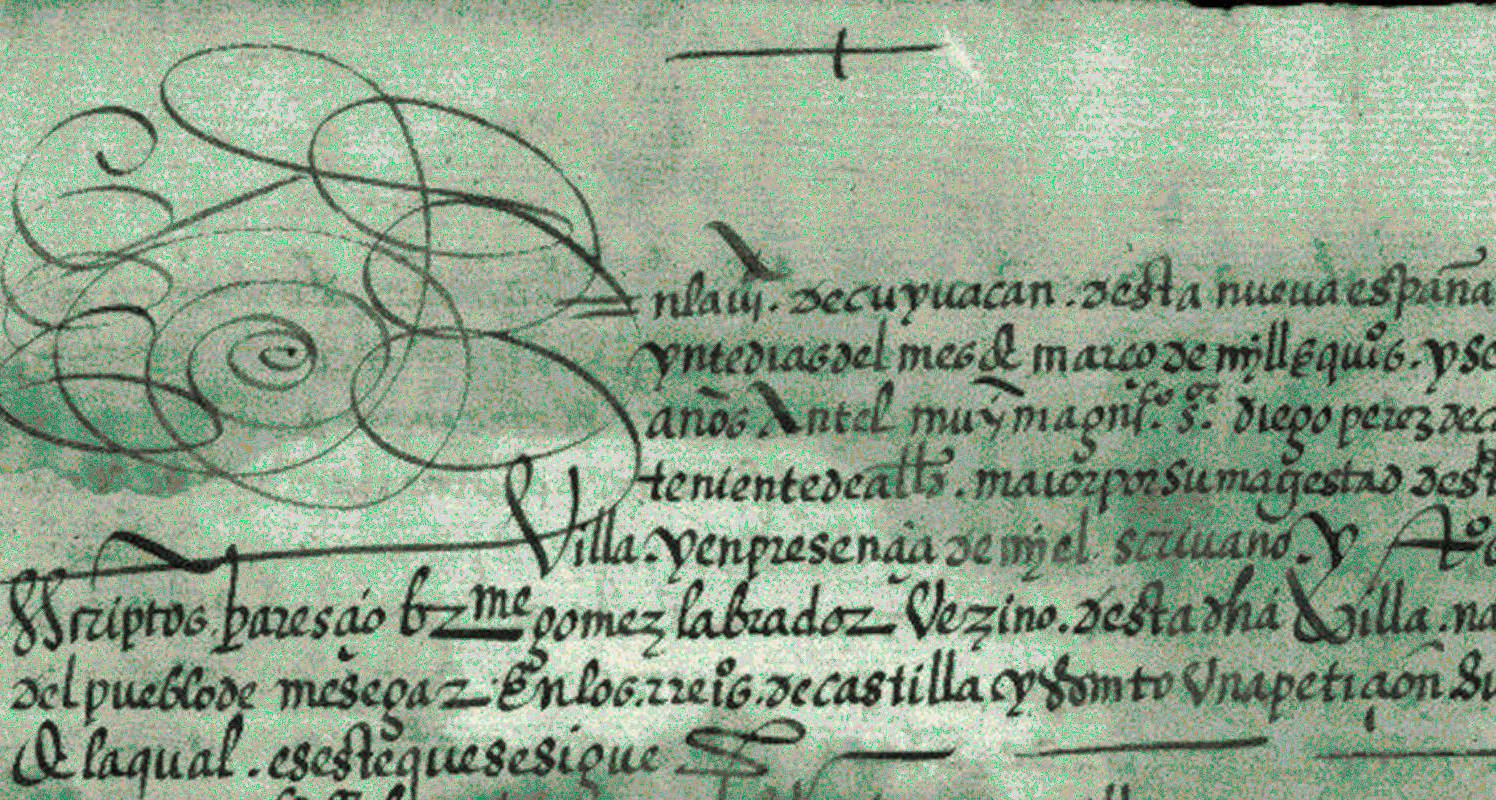 nla uj. de cuyuacan. desta nueua españa
ynte dias del mes de março de mjll e qui°s. y se
años Antel muy magnj.co s.or diego perez de
teniente de allde. maior por su magestad dest
Villa. y en presençia de mj el scriuano. y
scriptos paresçio br.me gomez labrador Vezino. desta dha Villa. na
del pueblo de meseгaz En los rrei°s de castilla y Vna petiçion
de la qual. es este que se sigue